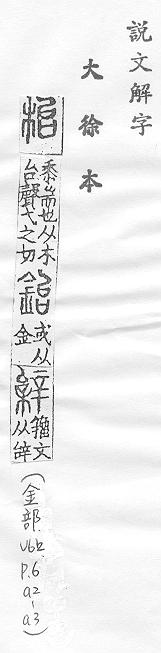 説文解字
大徐本
枱
耒耑也从木
台聲弋之切
鈶
或从
金
籒文
从辝
(金部 V6上 P.6 a2~a3)